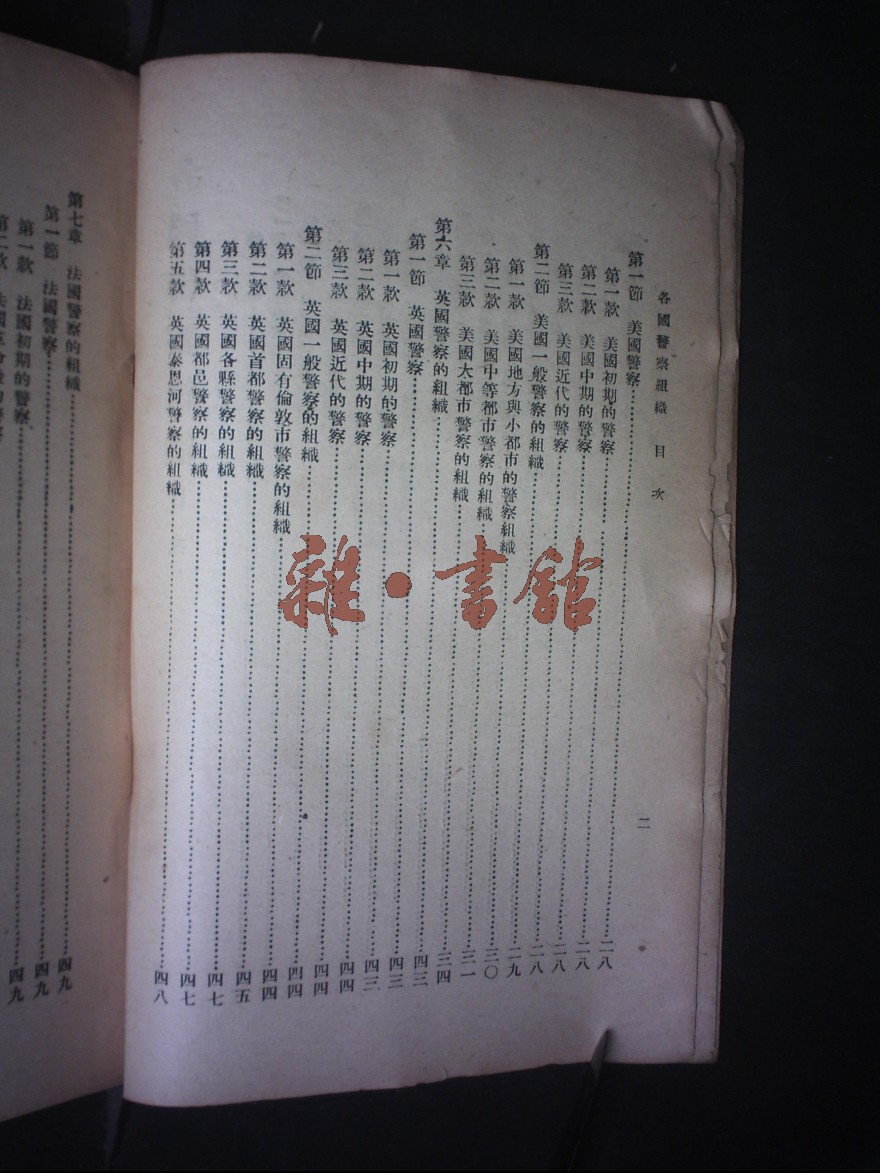 各國警察組織 目次 二
第一節 美國警察……二八
第一款 美國初期的警察……二八
第二款 美國中期的警察……二八
第三款 美國近代的警察……二八
第二節 美國一般警察的組織……二九
第一款 美國地方與小都市的警察組織……三〇
第二款 美國中等都市警察的組織……三一
第三款 美國大都市警察的組織……三四
第六章 英國警察的組織……四三
第一節 英國警察……四三
第一款 英國初期的警察……四三
第二款 英國中期的警察……四四
第三款 英國近代的警察……四四
第二節 英國一般警察的組織……四四
第一款 英國固有倫敦市警察的組織……四四
第二款 英國首都警察的組織……四五
第三款 英國各縣警察的組織……四七
第四款 英國都邑警察的組織……四七
第五款 英國泰恩河警察的組織……四八
第七章 法國警察的組織……四九
第一節 法國警察……四九
第一款 法國初期的警察……四九
第二款
雜·書館